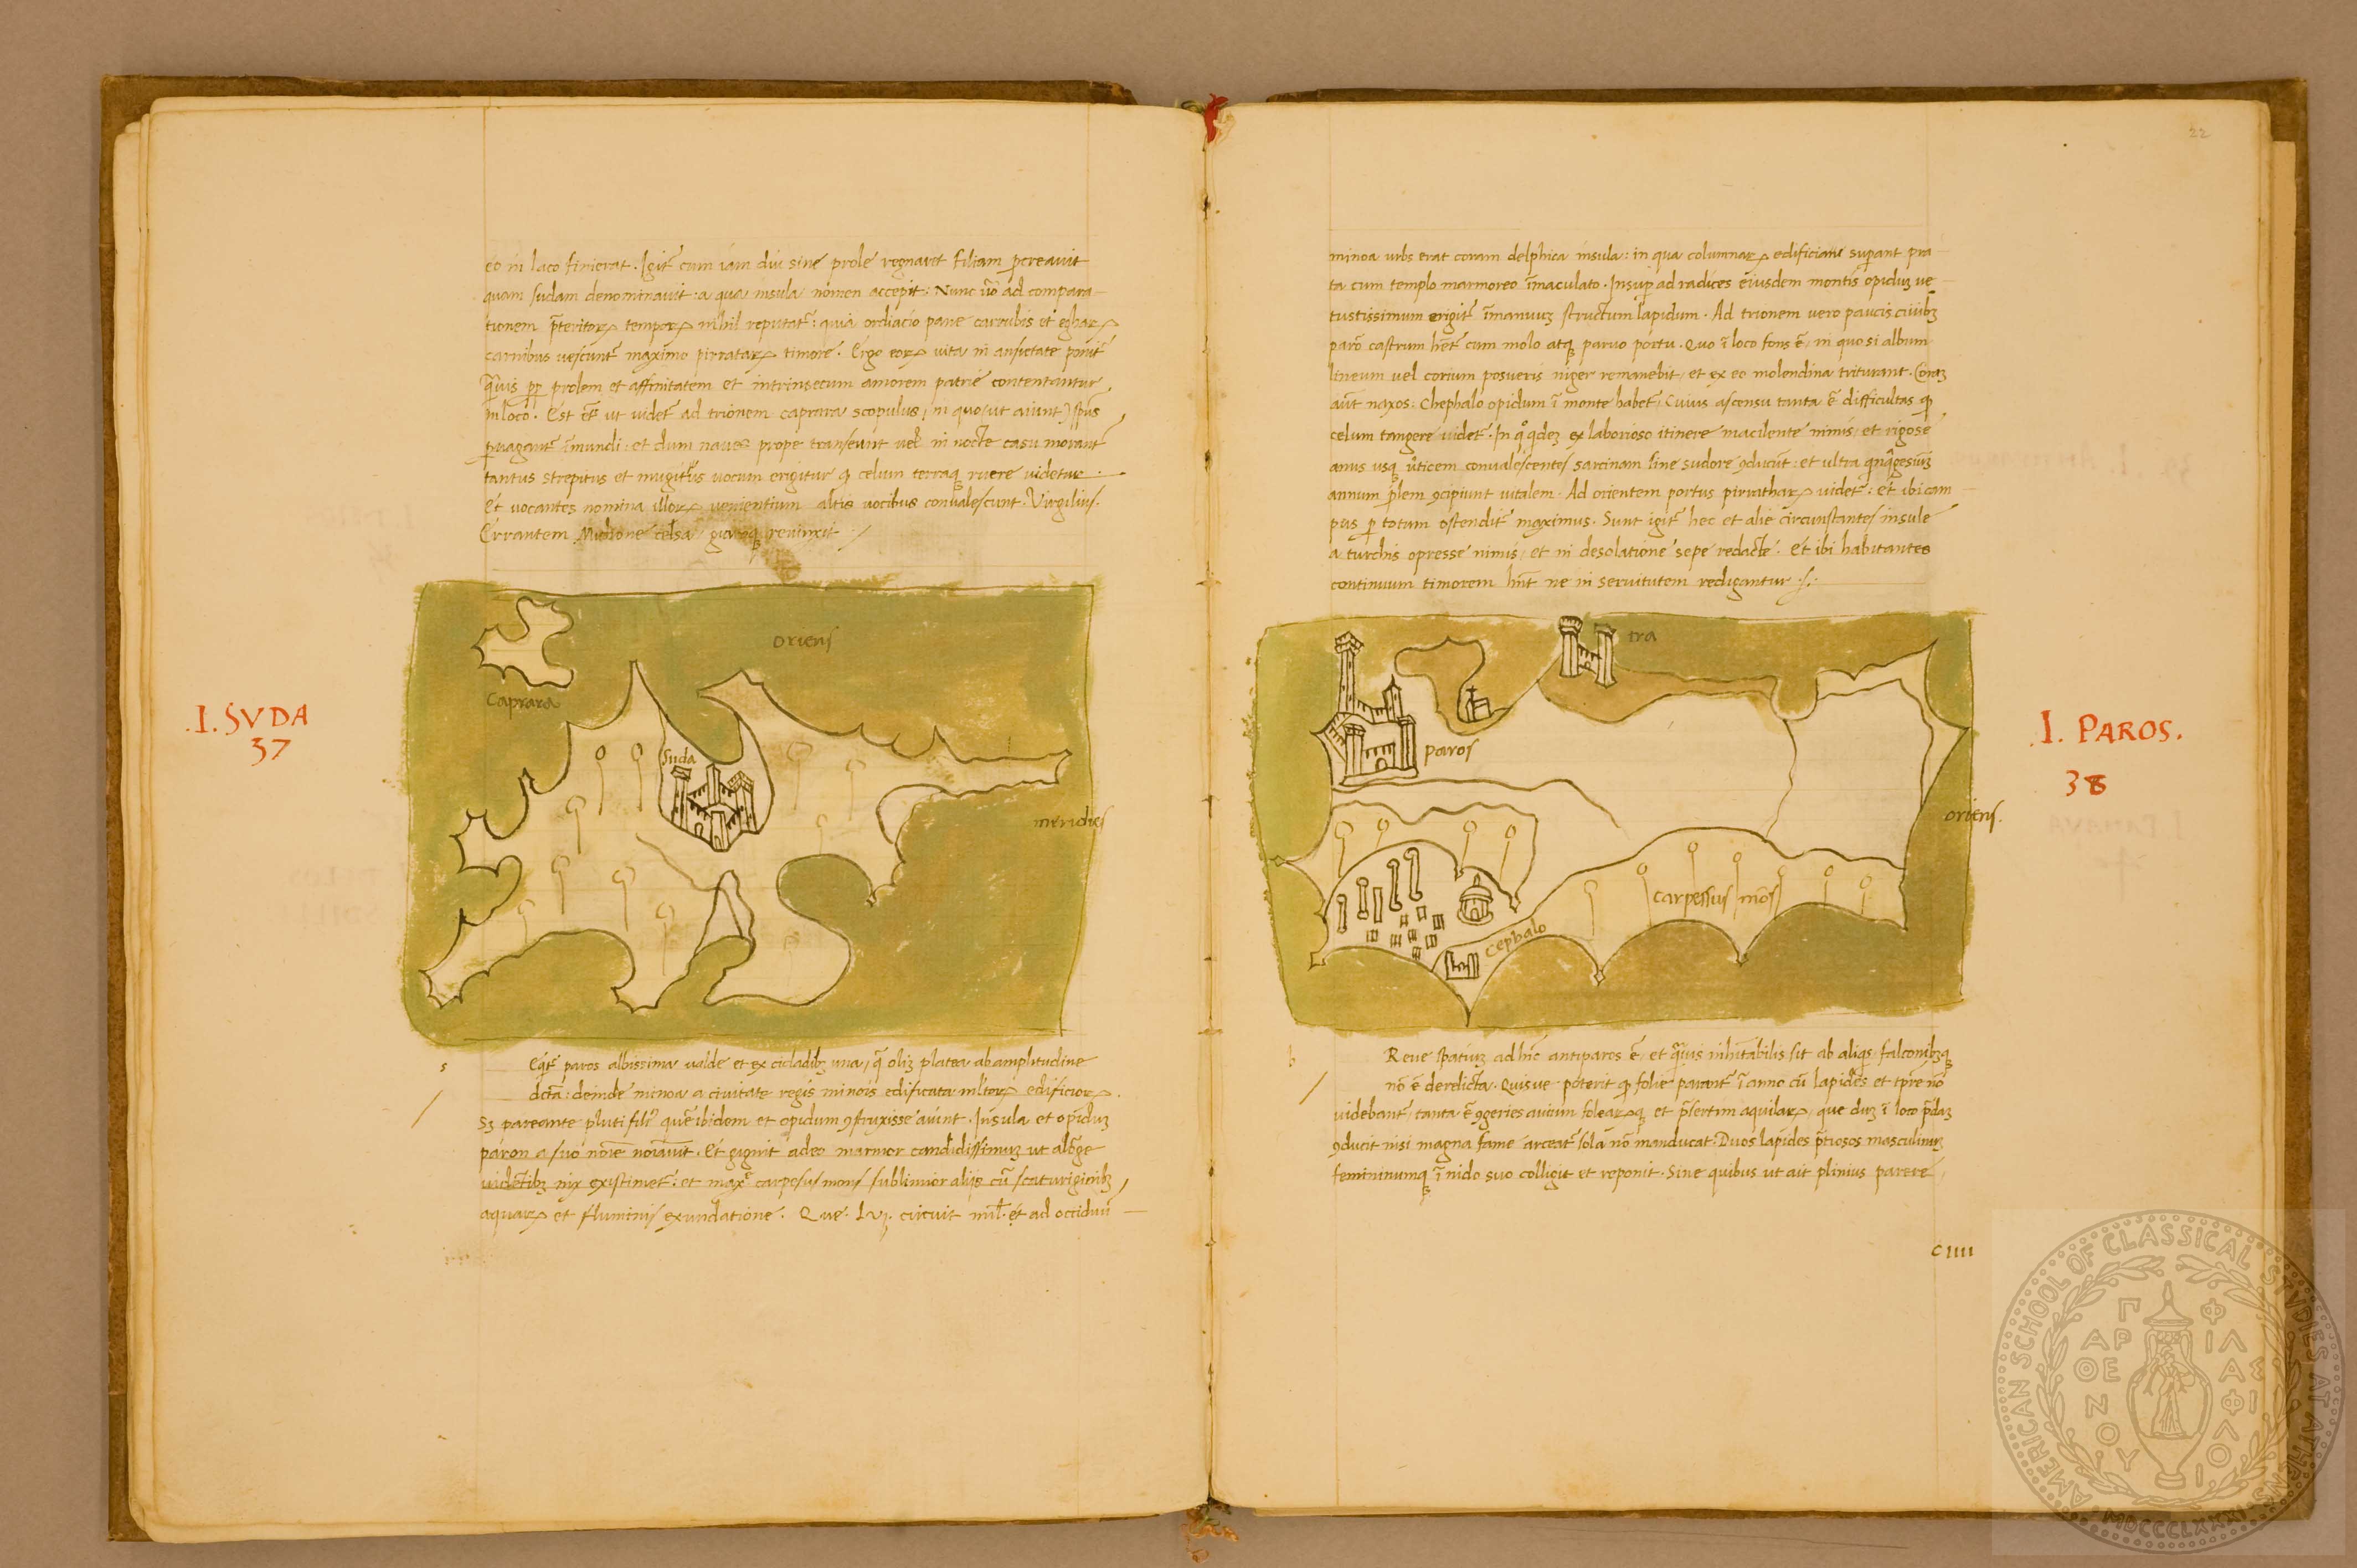 eo in laco finierat. Igit̃ cum iam diu sine prole regnaret filiam ꝓcreauit
quam sudam denominauit: a qua insula nomen accepit: Nunc ũo ad compara
tionem p̃teritoꝝ tempoꝝ nihil reputat̃: quia ordiacio pane carrubis et egharꝝ
carnibus uescunt̃ maximo pirrataꝝ timore. Ergo eoꝝ vita in ansietate ponit̃
prolem et affinitatem et intrinsecum amorem patrie contentantur
in loco. Est et̃ ut uidet̃ ad trionem caprara scopulus, in quo (ut aiunt) sp̃us
ꝑuagant̃ ĩmundi: et dum naues prope transeunt uel in nocte casu morant̃
tantus strepitus et mugitus uocum erigitur ꝙ celum terraqꝫ ruere uidetur.
Et uocantes nomina illoꝝ uenientium altis uocibus conualescunt. Virgilius.
Errantem Michone celsa, giaroqꝫ reuinxit
oriens
Caprara
Suda
meridies
I. SVDA
37
s
Eqt̃ paros albissima ualde et ex cicladibꝫ una, q̃ olim platea ab amplitudine
dcta: deinde minoa a ciuitate regis minois edificata mltoꝝ edificioꝝ.
Sꝫ pareante pluti filio quẽ ibidem et opidum ꝯstruxisse aiunt. Insula et opidum
paron a suo noĩe noĩauit. Et gignit adeo marmor candidissimum ut alõge
uidẽtibꝫ nix existimet̃. et max̃e carpesus mons sublimior aliis cũ scaturiginibꝫ
aquaꝝ et fluminis exundatione. Que. lvj. circuit mil. et ad occiduũ
22
minoa urbs erat coram delphica insula: in qua columnaꝝ edificiaue suꝑant pra
ta cum templo marmoreo ĩmaculato. Insuꝑ ad radices eiusdem montis opidum ue
tustissimum erigit̃ ĩmanium structum lapidum. Ad trionem uero paucis ciuibꝫ
parõ castrum hẽt cum molo atqꝫ paruo portu. Quo ĩ loco fons ẽ, in quo si album
lineum uel corium posueris niger remanebit, et ex eo molendina triturant. Coraz
aũt naxos: Chephalo opidum ĩ monte habet̃, cuius ascensu tanta ẽ difficultas ꝙ
celum tangere uidet̃. In qͦ qdeꝫ ex laborioso itinere macilente nimis, et rigose
anus usqꝫ ũticem conualescentes sarcinam sine sudore ꝯducũt: et ultra qnq̃gesimũ
annum ꝓlem ꝯcipiunt uitalem. Ad orientem portus pirrathaꝝ uidet̃: et ibi cam
pus ꝑ totum ostendit̃ maximus. Sunt igit̃ hec et alie circunstantes insule
a turchis opresse nimis, et in desolatione sepe redacte. Et ibi habitantes
continuum timorem hñt ne in seruitutem redigantur
tra
paros
oriens.
carpessus mõs
cephalo
I. PAROS.
38
b
Reue spatium adhĩc antiparos ẽ, et q̃uis inhitabilis sit ab aliqs, falconibꝫqꝫ
nõ ẽ derelicta. Quisue poterit ꝙ folie parant̃ ĩ anno cũ lapides et tpre nõ
uidebant̃, tanta ẽ ꝯgeries auium foleaꝝqꝫ et p̃sertim aquilaꝝ, que dum ĩ loco p̃dam
ꝯducit nisi magna fame arceat̃ sola nõ manducat. Duos lapides p̃tiosos masculinum
femininumqꝫ ĩ nido suo colligit et reponit. Sine quibus ut ait plinius parere
c iiii
AMERICAN SCHOOL OF CLASSICAL STVDIES AT ATHENS
MDCCCLXXXI
ΠΑΡΘΕΝΟΥ ΦΙΛΑΣ ΦΙΛΟΙ